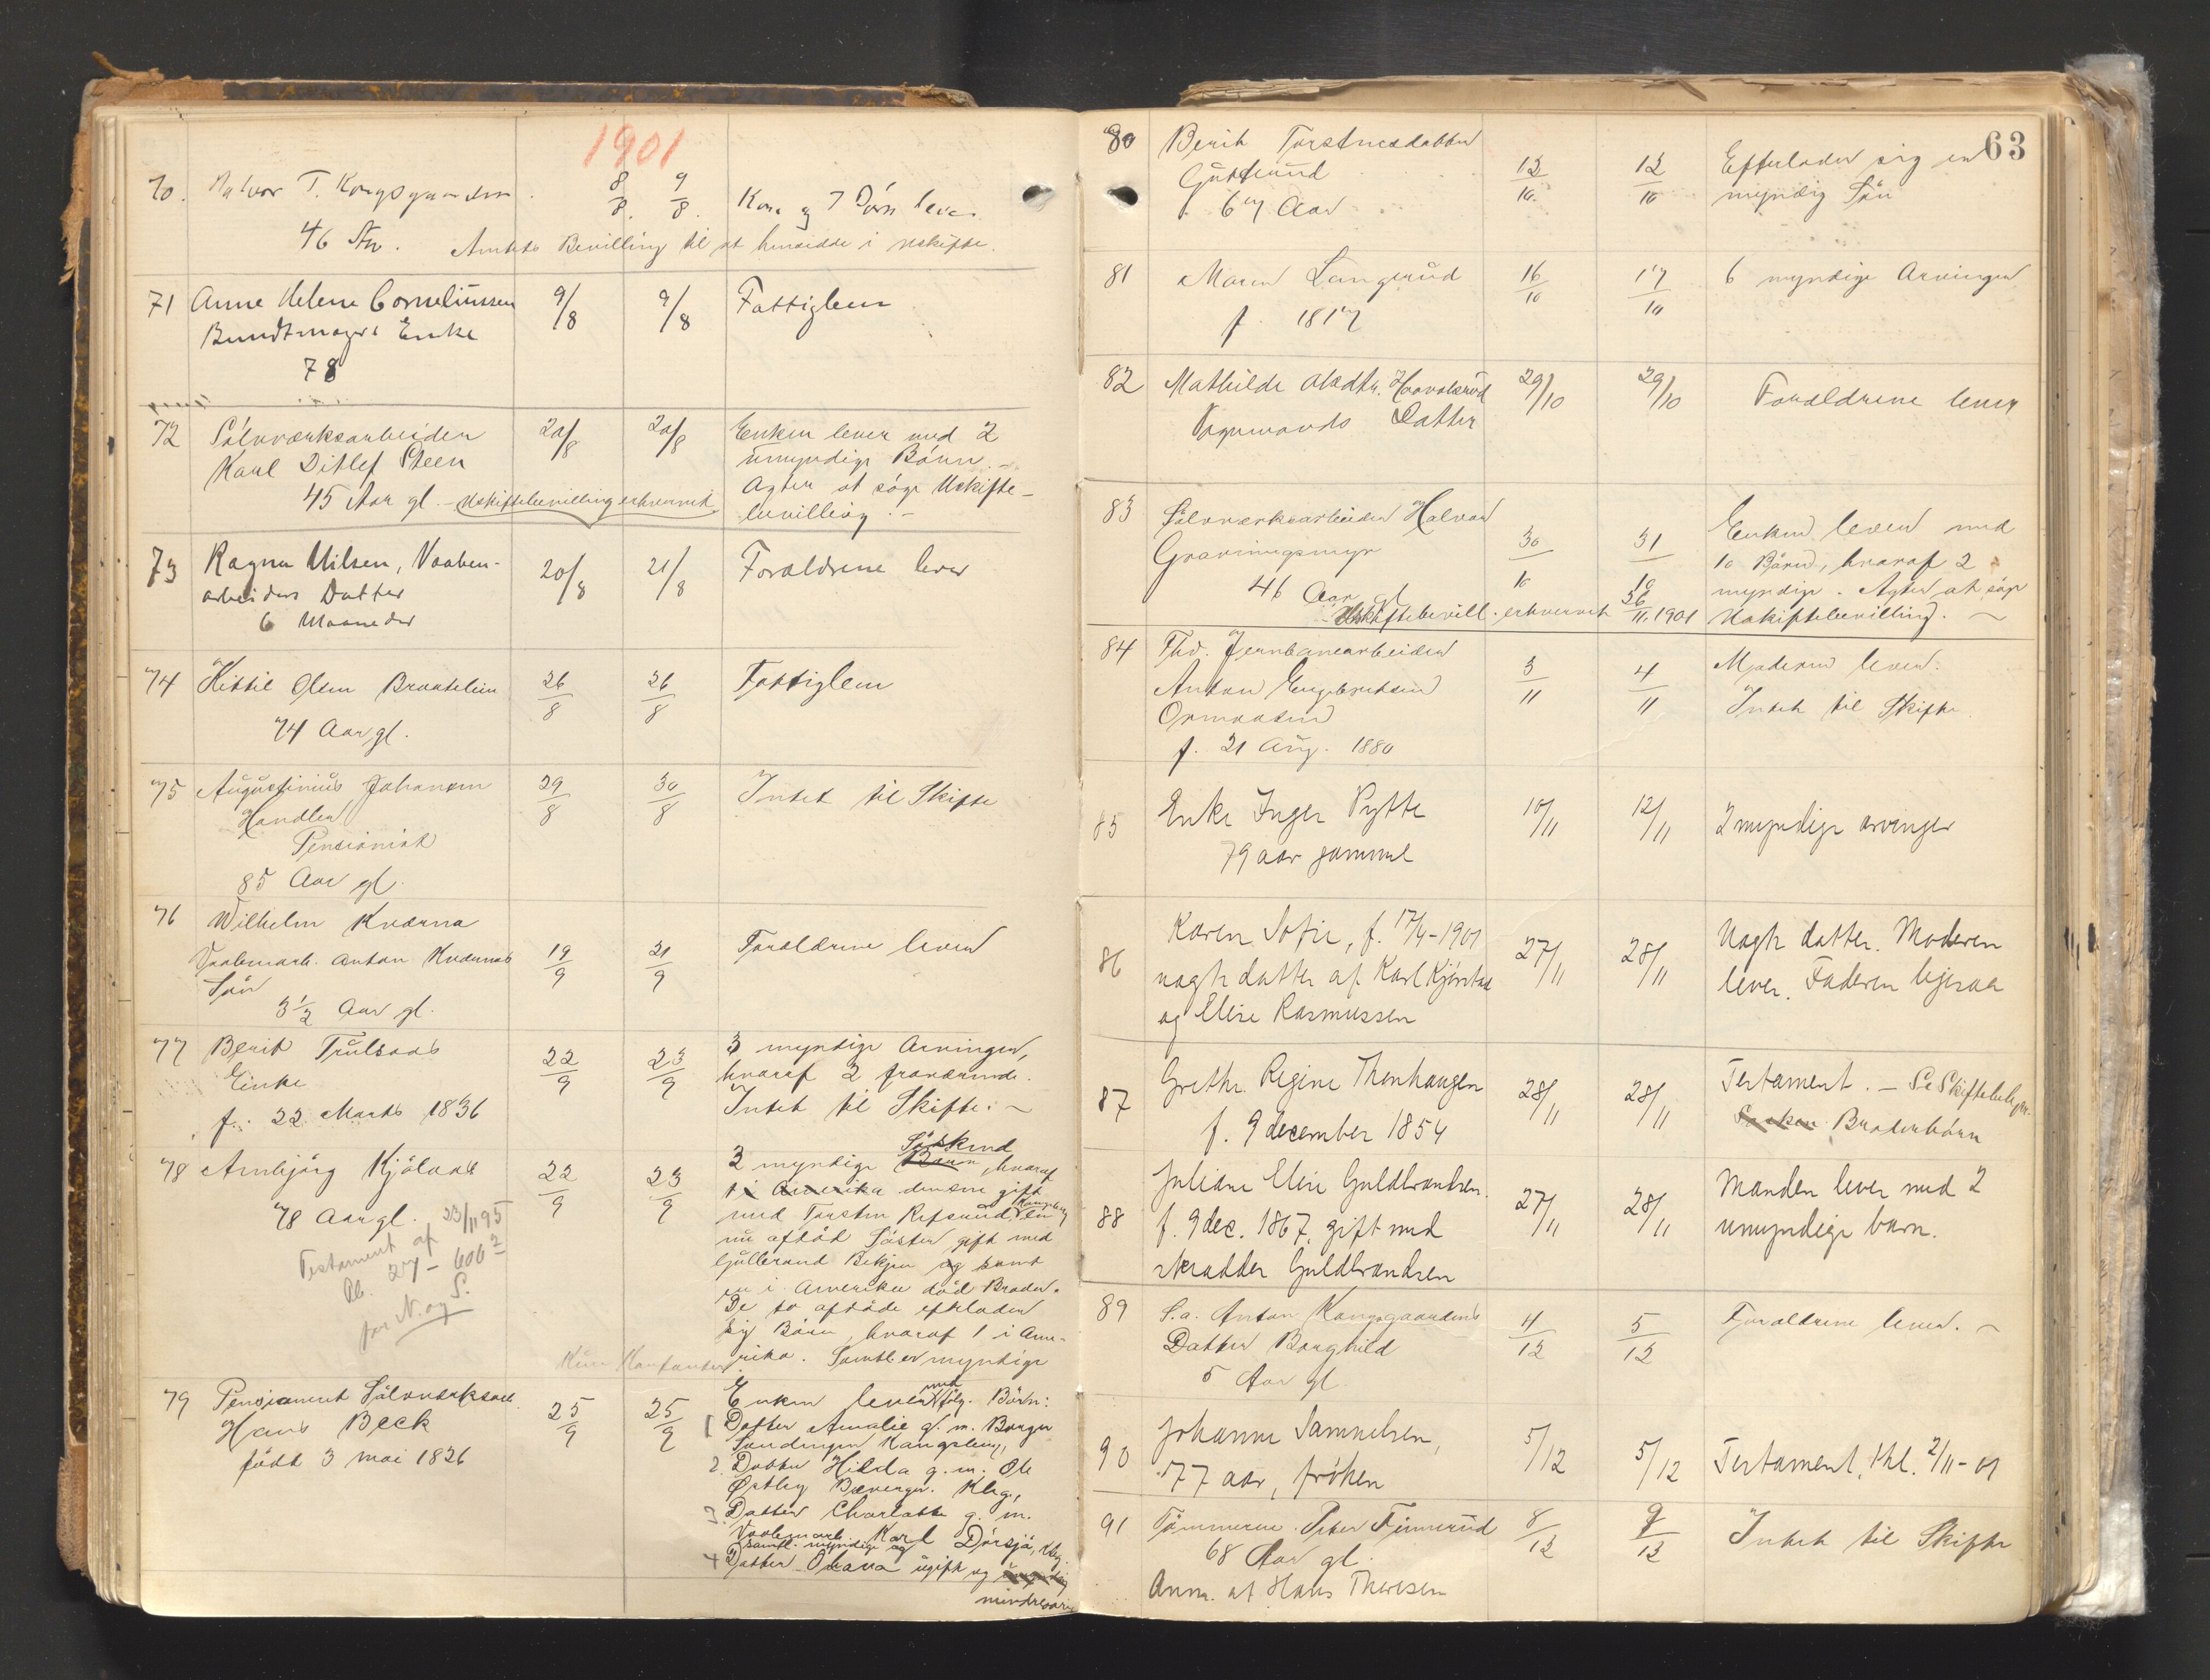 1901
70. Halvor T. Kongsgaarden 8/8. 9/8. Kone og 7 Børn lever
46 Aar. Amtets Bevilling til at hensidde i uskifte.
71 Anne Helene Corneliussen 9/8 9/8 Fattiglem
Bundtmager Enke
78
72 Sølvværksarbeider 20/8 20/8 Enken lever med 2
Karl Ditlef Steen umyndige Børn. -
45 Aar gl. - Uskiftebevilling erhvervet Agter at søge Uskifte-
bevilling. -
73 Ragna Nilsen, Vaaben- 20/8 21/8 Forældrene lever
arbeiders Datter
6 Maaneder
74 Kittil Olsen Braatelien 26/8 26/8 Fattiglem
74 Aar gl.
75 Augustinius Johansen 29/8 30/8 Intet til Skifte
Handler
Pensionist
85 Aar gl.
76 Wilhelm Kværna
Vaabenarb. Anton Kværnas 19/9 21/9 Forældrene lever
Søn
3½ Aar gl.
77 Berit Trulsaas 22/9 23/9 3 myndige Arvinger,
Enke hvoraf 2 fraværende.
f. 22 Marts 1836 Intet til Skifte. -
78 Arnbjørg Kjølaas 22/9 23/9 2 myndige Børn Søskend, hvoraf
78 Aar gl. 1 i Amerika densene gift
Testament af 23/11 95 med Torsten Refsund, Kongsberg en
Rb. 27 - 600² nu afdød Søster gift med
for N. og S. Gullbrand Bekjen og samt
en i Amerika død Broder.
De to afdøde efterlader
sig Børn, hvoraf 1 i Ame-
rika. Samtl er myndige
Kun Kontanter
79 Pensioneret Sølvverksarb. 25/9 25/9 Enken lever med følg. Børn:
Hans Beck 1 Datter Amalie g. m. Borger
født 3 mai 1826 Kongsberg,
2. Datter Hilda g. m. Ole
Østby Kbrg.,
3 Datter Charlotte g. m.
Vaabenarb. Karl Dørsjø, Kbrg.
samtl. myndige og
4 Datter Olava ugift og
mindreaarig
63
80 Berit Torstensdatter 12/10 12/10 Efterlader sig en
Gutterud myndig Søn
67 Aar
81 Maren Langerud 16/10 17/10 6 myndige Arvinger
f. 1817
82 Mathilde Olsdtr. Hovolsrud 29/10 29/10 Forældrene lever
Vognmands Datter
83 Sølvværksarbeider Halvor 30/10 31/10 Enken lever med
Graveningsmyr 10 Børn, hvoraf 2
46 Aar gl myndige. Agter at søge
Uskiftebevill. erhvervet 26/11.1901 Uskiftebevilling. -
84 Fhv. Jernbanearbeider 3/11 4/11 Moderen lever.
Anton Engebretsen Intet til Skifte
Ormaasen
f. 21 Aug. 1880
85 Enke Inger Pytte 10/11 12/11 2 myndige arvinger
79 aar gammel
86 Karen Sofie, f. 17/4-1901 27/11 28/11 Uægte datter. Moderen
uægte datter af Karl Kjørstad lever. Faderen ligesaa
og Elise Rasmussen
87 Grethe Regine Thonhaugen 28/11 28/11 Testament. - Se Skiftebilagene.
f. 9 december 1854 Broderbørn
88 Juliane Elise Guldbrandsen 27/11 28/11 Manden lever med 2
f. 9 dec. 1867, gift med umyndige barn.
skrædder Guldbrandsen
89 S.a. Anton Kongsgaardens 4/12 5/12 Forældrene lever. -
Datter Borghild
5 Aar gl
90 Johanne Samuelsen, 5/12 5/12 Testament, thl. 2/11-01
77 aar, frøken
91 Tømmerm. Peter Finnerud 8/12 9/12 Intet til Skifte
68 Aar gl.
Anm. af Hans Theresen